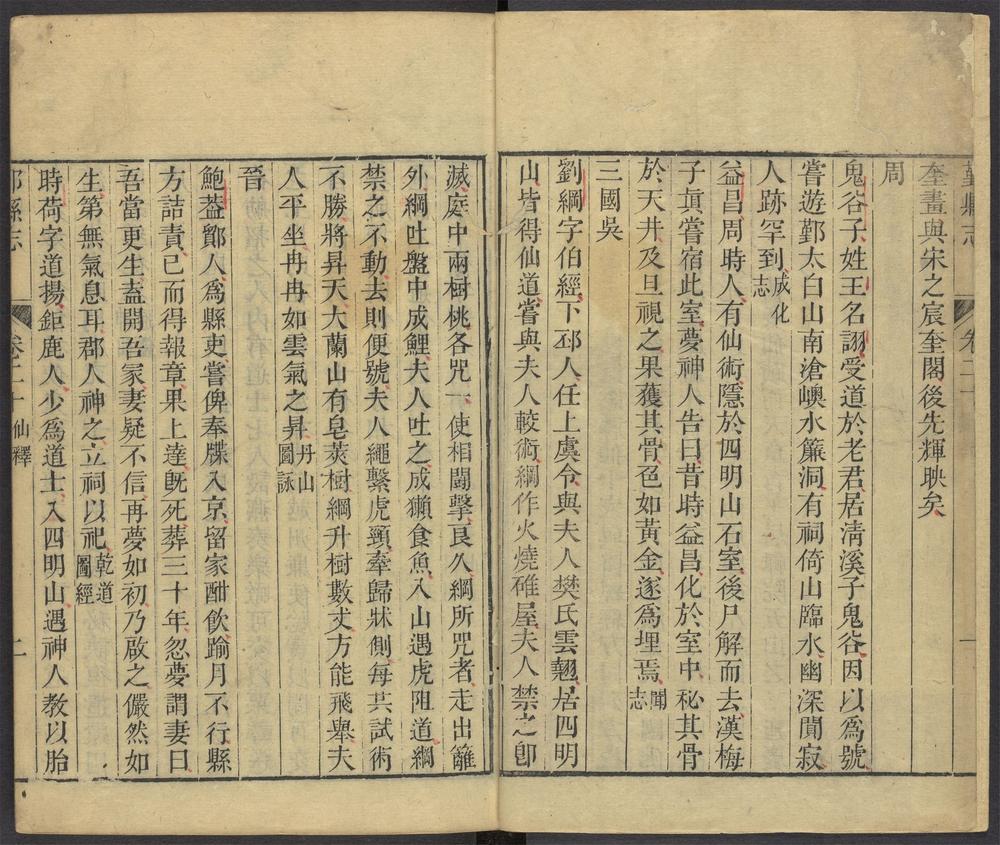 鄞縣志
卷二十
一
奎畫與宋之宸奎閣後先輝映矣
周
鬼谷子姓王名詡受道於老君居淸溪子鬼谷因以爲號
嘗遊鄞太白山南滄嶼水簾洞有祠倚山臨水幽深闃寂
人跡罕到成化志
益昌周時人有仙術隱於四明山石室後尸解而去漢梅
子眞嘗宿此室夢神人告曰昔時益昌化於室中秘其骨
於天井及旦視之果獲其骨色如黃金遂爲埋焉聞志
三國吳
劉綱字伯經下邳人任上虞令與夫人樊氏雲翹居四明
山皆得仙道嘗與夫人較術綱作火燒碓屋夫人禁之卽
滅庭中兩樹桃各咒一使相鬭擊良久綱所咒者走出籬
外綱吐盤中成鯉夫人吐之成獺食魚入山遇虎阻道綱
禁之不動去則便號夫人繩繫虎頸牽歸牀側每共試術
不勝將昇天大蘭山有皂莢樹綱升樹數丈方能飛舉夫
人平坐冉冉如雲氣之昇丹山圖詠
晉
鮑葢鄮人爲縣吏嘗俾奉牒入京留家酣飲踰月不行縣
方詰責已而得報章果上達旣死葬三十年忽夢謂妻曰
吾當更生盍開吾冢妻疑不信再夢如初乃啟之儼然如
生第無氣息耳郡人神之立祠以祀乾道圖經
時荷字道揚鉅鹿人少爲道士入四明山遇神人教以胎
縣志
卷二十
仙釋
二